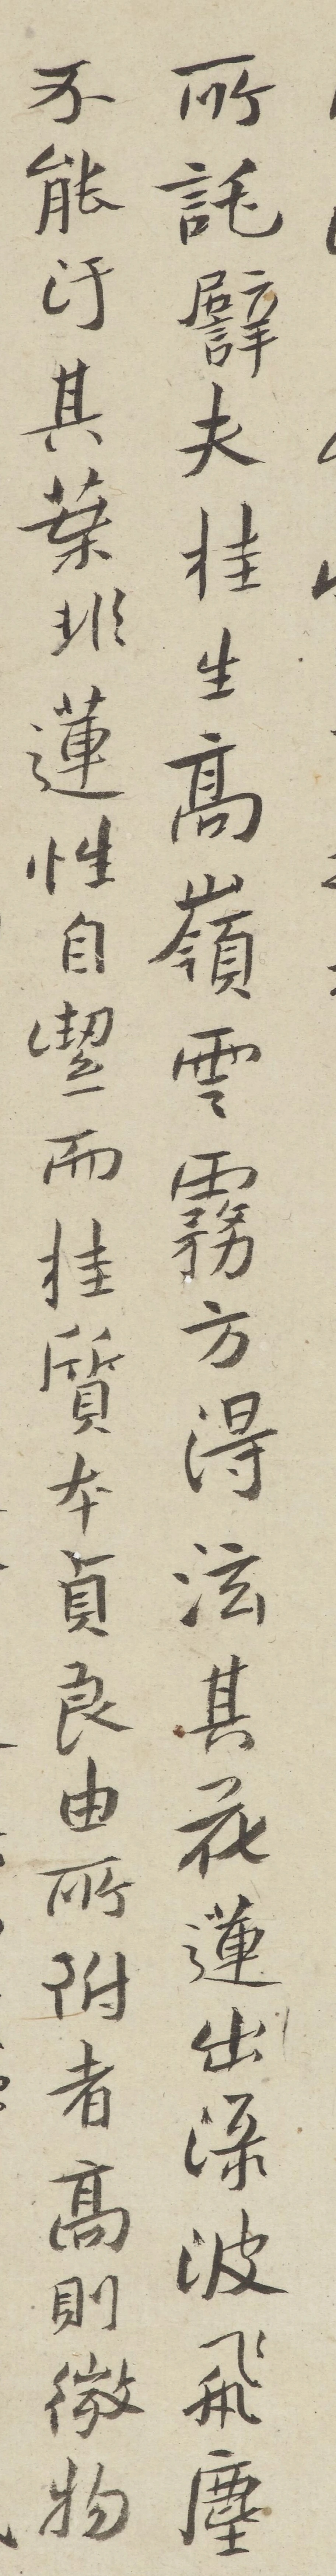 所託譬夫桂生高嶺雲霧方得泫其花蓮出渌波飛塵
不能汙其葉非蓮性自潔而桂質本貞良由所附者高則微物